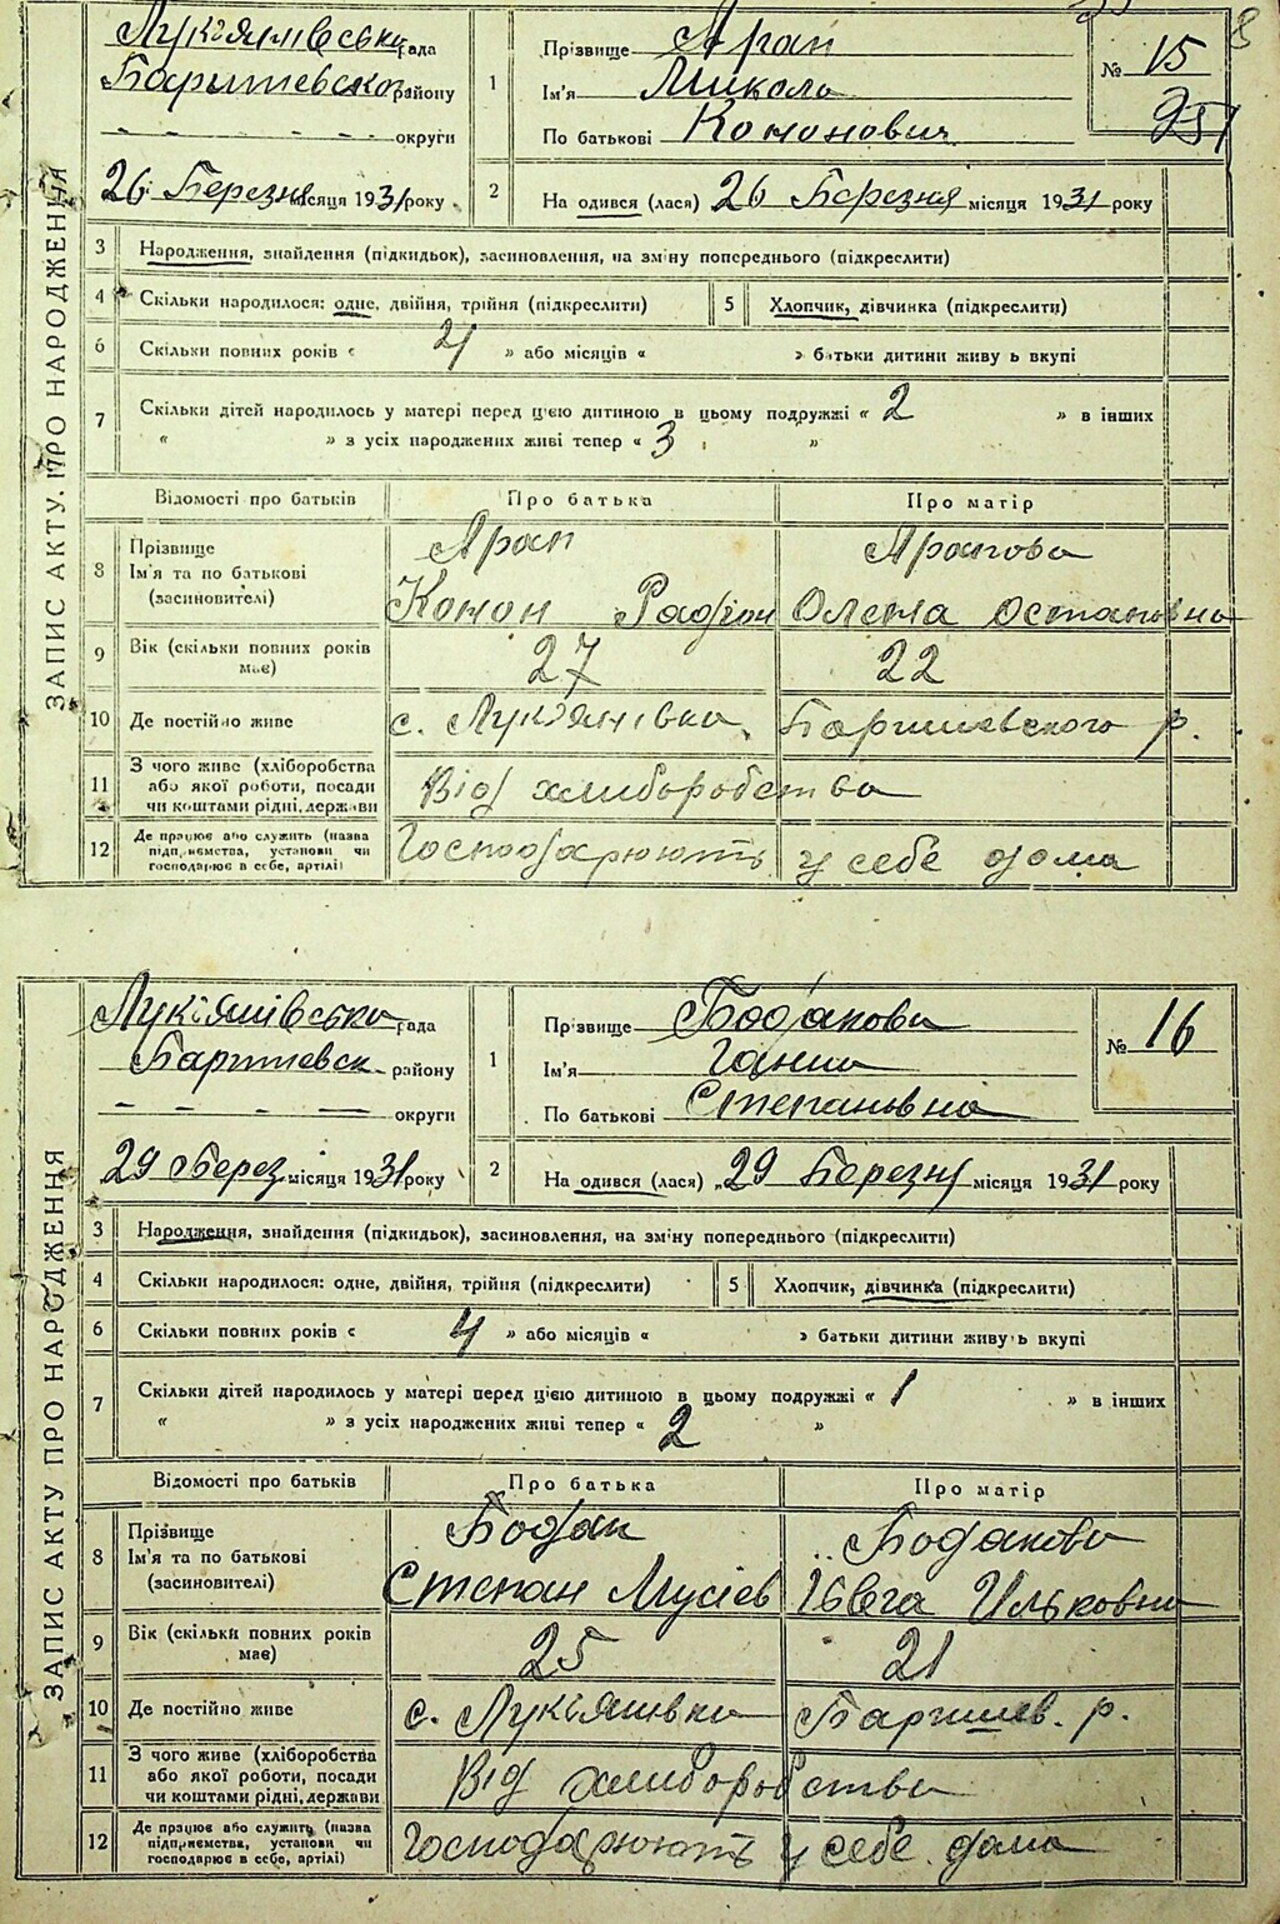 ЗАПИС АКТУ ПРО НАРОДЖЕННЯ
Лук'янівська рада
Баришевского району
округи
26 Березня місяця 1931 року
1
Прізвище Арап
Ім'я Микола
По батькові Кононович
№ 15
251
8
2
На одився (лася) 26 Березня місяця 1931 року
3 Народження, знайдення (підкидьок), засиновлення, на зміну попереднього (підкреслити)
4 Скільки народилося: одне, двійня, трійня (підкреслити)
5 Хлопчик, дівчинка (підкреслити)
6 Скільки повних років « 4 » або місяців « » батьки дитини живу ь вкупі
7 Скільки дітей народилось у матері перед цією дитиною в цьому подружжі « 2 » в інших
« » з усіх народжених живі тепер « 3 »
Відомості про батьків Про батька Про матір
8 Прізвище Арап Арапова
Ім'я та по батькові
(засиновителі) Конон Радіон Олена Остаповна
9 Вік (скільки повних років
має) 27 22
10 Де постійно живе с. Лук'янівка Баришевского р.
11 З чого живе (хліборобства
або якої роботи, посади
чи коштами рідні, держави Від хлиборобства
12 Де працює або служить (назва
підприємства, установи чи
господарює в себе, артілі) Господарюють у себе дома
ЗАПИС АКТУ ПРО НАРОДЖЕННЯ
Лук'янівська рада
Баришевск району
округи
29 Берез місяця 1931 року
1
Прізвище Бодакова
Ім'я Ганна
По батькові Степановна
№ 16
2
На одився (лася) 29 Березня місяця 1931 року
3 Народження, знайдення (підкидьок), засиновлення, на зміну попереднього (підкреслити)
4 Скільки народилося: одне, двійня, трійня (підкреслити)
5 Хлопчик, дівчинка (підкреслити)
6 Скільки повних років « 4 » або місяців « » батьки дитини живу ь вкупі
7 Скільки дітей народилось у матері перед цією дитиною в цьому подружжі « 1 » в інших
« » з усіх народжених живі тепер « 2 »
Відомості про батьків Про батька Про матір
8 Прізвище Бодак Бодакова
Ім'я та по батькові
(засиновителі) Степан Мусієв Ївга Ильковна
9 Вік (скільки повних років
має) 25 21
10 Де постійно живе с. Лук'янівка Баришев. р.
11 З чого живе (хліборобства
або якої роботи, посади
чи коштами рідні, держави Від хлиборобства
12 Де працює або служить (назва
підприємства, установи чи
господарює в себе, артілі) Господарюють у себе дома